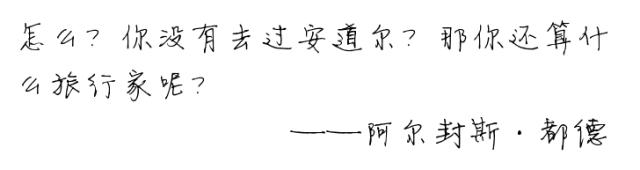 怎么？你没有去过安道尔？那你还算什
么旅行家呢？
——阿尔封斯·都德